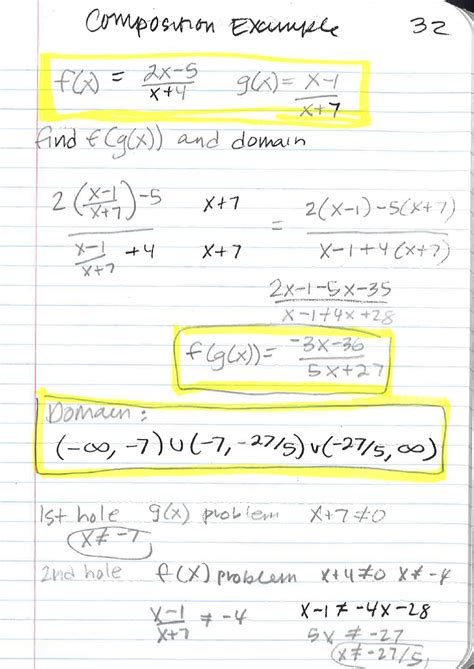 Composition Example 32
f(x) = (2x-5)/(x+4) g(x) = (x-1)/(x+7)
find f(g(x)) and domain
(2((x-1)/(x+7))-5)/((x-1)/(x+7)+4) (x+7)/(x+7) = (2(x-1)-5(x+7))/(x-1+4(x+7))
(2x-1-5x-35)/(x-1+4x+28)
f(g(x)) = (-3x-36)/(5x+27)
Domain:
(-∞, -7)∪(-7, -27/5)∪(-27/5, ∞)
1st hole g(x) problem x+7≠0
x≠-7
2nd hole f(x) problem x+4≠0 x≠-4
(x-1)/(x+7) ≠ -4 x-1≠-4x-28
5x≠-27
x≠-27/5